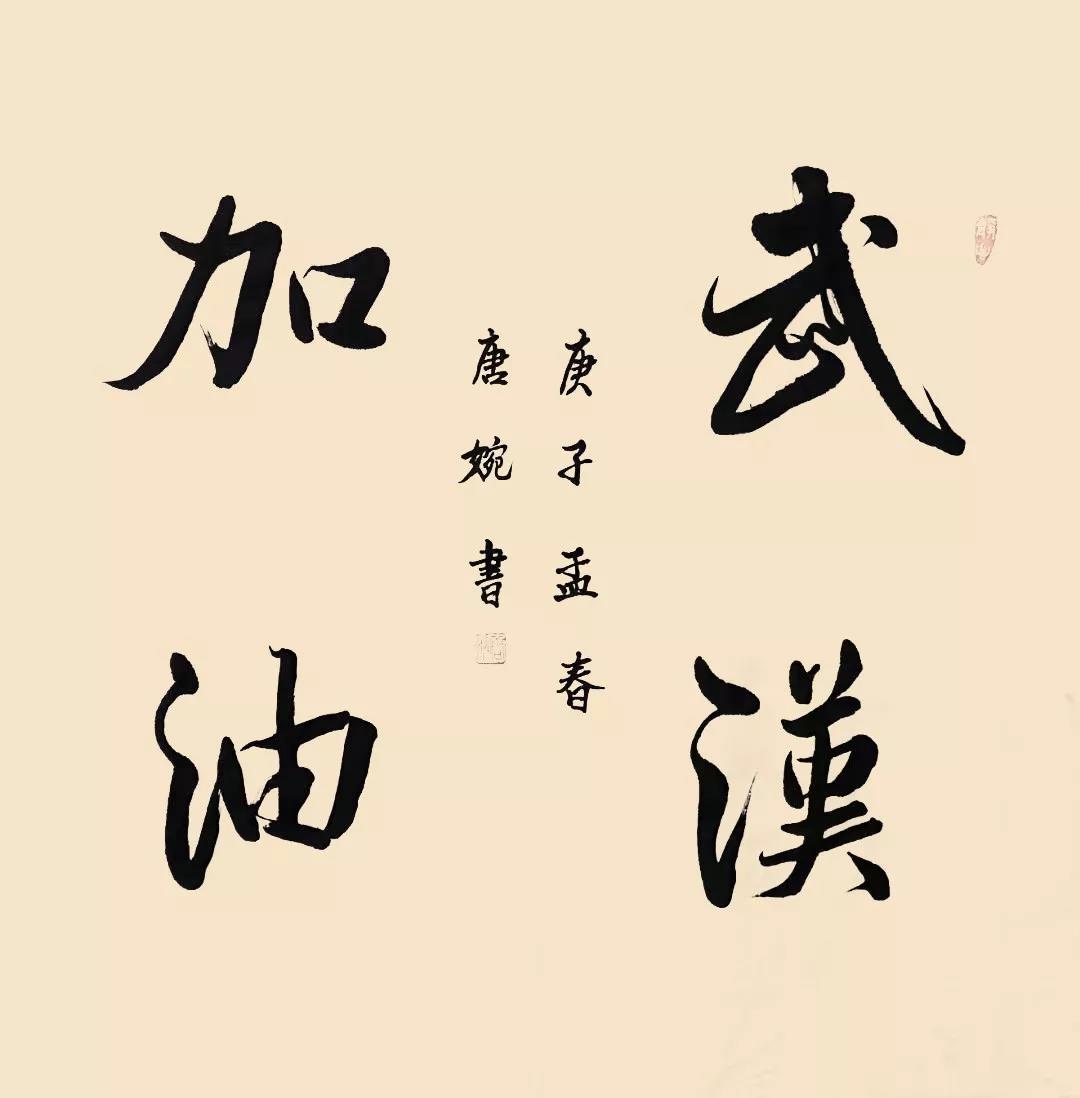 武漢
加油
庚子孟春
唐婉書